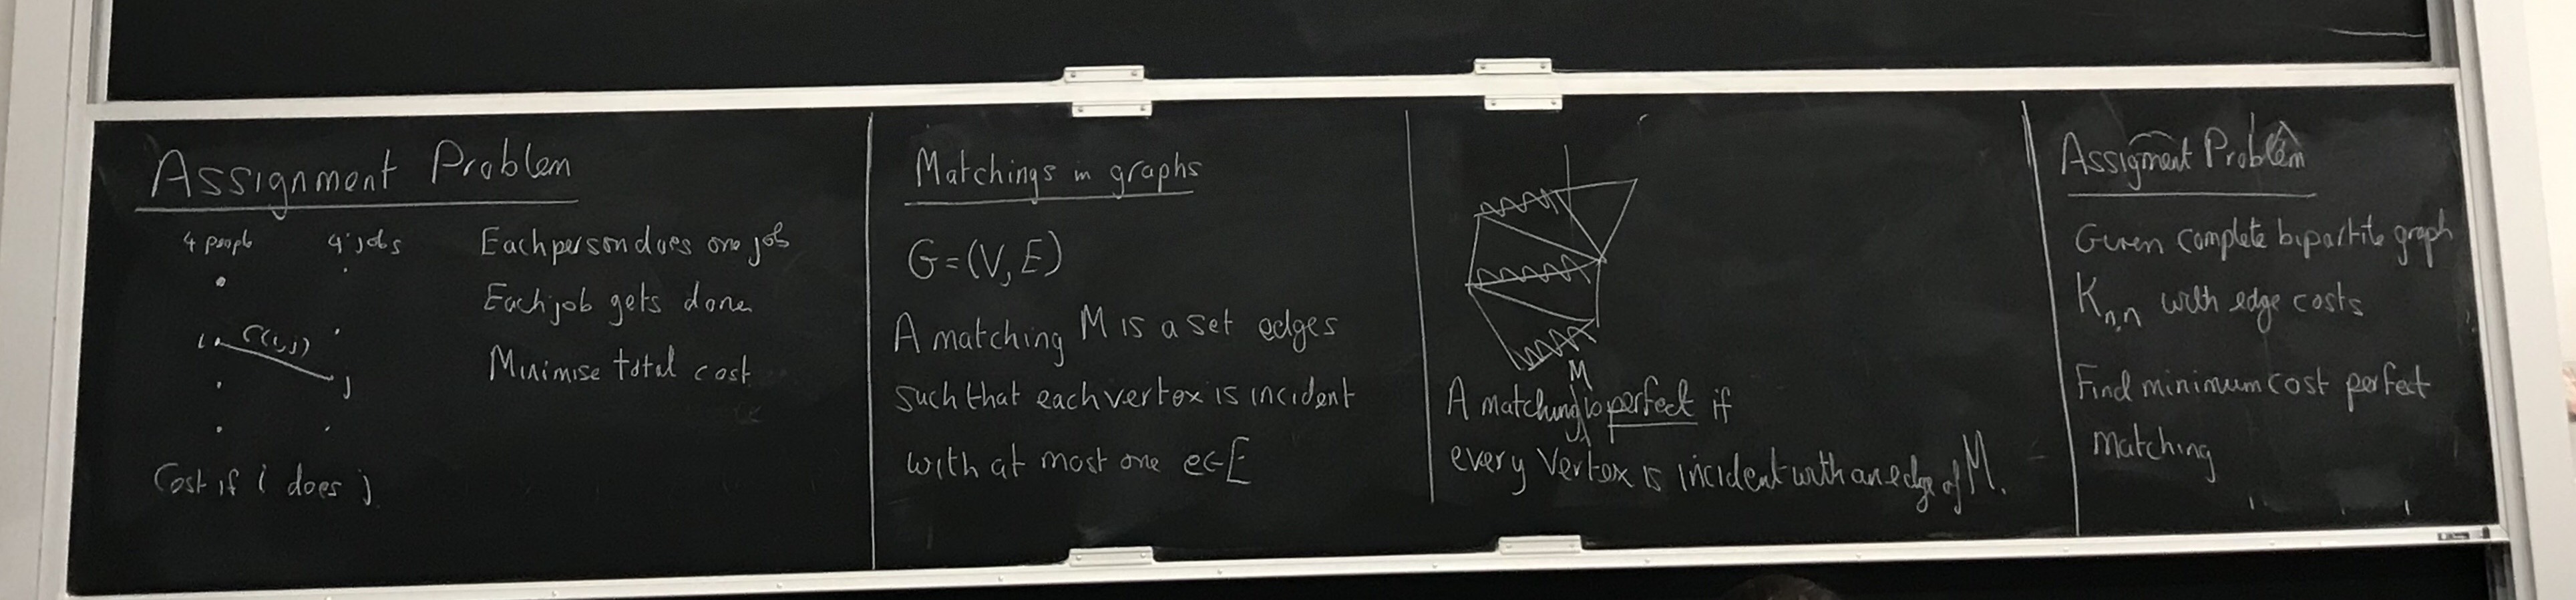 Assignment Problem
4 people 4 jobs
Each person does one job
Each job gets done
i c(i,j) j
Minimise total cost
Cost if i does j
Matchings in graphs
G=(V,E)
A matching M is a set edges
such that each vertex is incident
with at most one e∈E
M
A matching is perfect if
every vertex is incident with an edge of M.
Assigment Problem
Given complete bipartite graph
Kn,n with edge costs
Find minimum cost perfect
matching